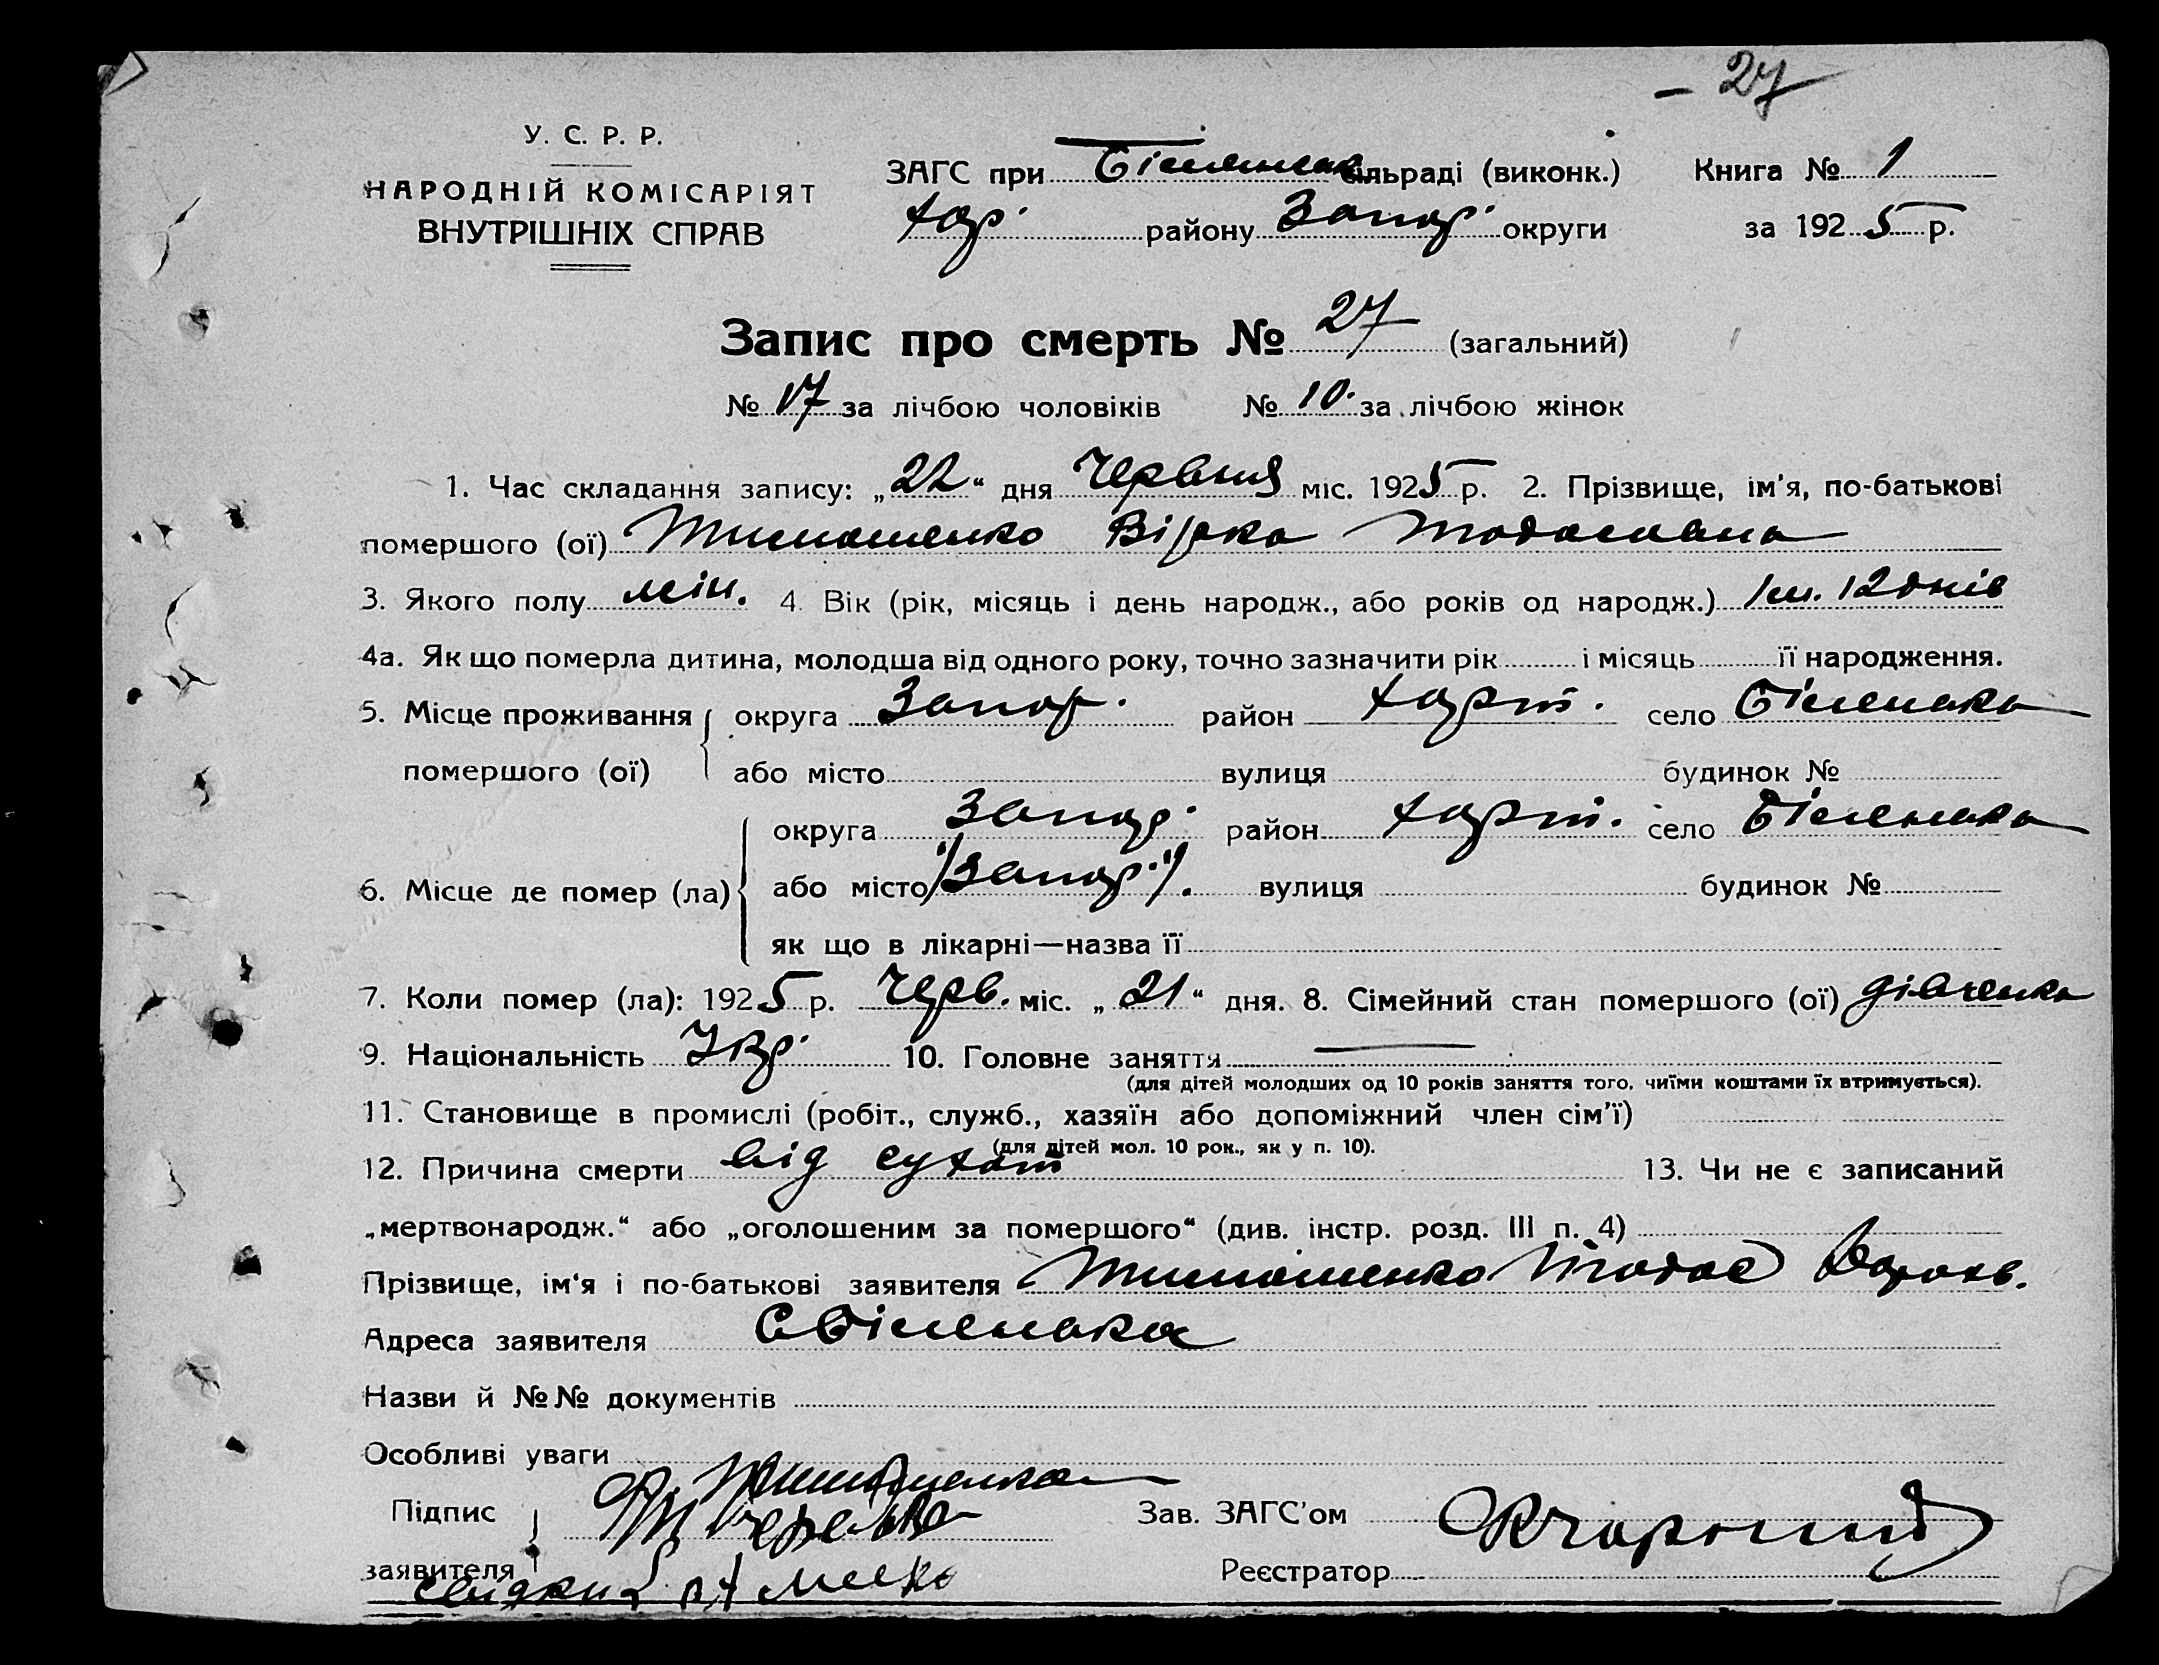 - 27
У. С. Р. Р.
НАРОДНІЙ КОМІСАРІЯТ
ВНУТРІШНІХ СПРАВ
ЗАГС при Біленськ сільраді (виконк.) Книга № 1
Хор. району Запор. округи за 1925 р.
Запис про смерть № 27 (загальний)
№ 17 за лічбою чоловіків № 10. за лічбою жінок
1. Час складання запису: „22“ дня Червня міс. 1925 р. 2. Прізвище, ім'я, по-батькові
помершого (ої) Тимошенко Вірка Тодосовна
3. Якого полу жін. 4. Вік (рік, місяць і день народж., або років од народж.) 1 м. 12 днів
4а. Як що померла дитина, молодша від одного року, точно зазначити рік і місяць її народження.
5. Місце проживання округа Запор. район Хорт. село Біленька
помершого (ої) або місто вулиця будинок №
округа Запор. район Хорт. село Біленька
6. Місце де помер (ла) або місто Запор. вулиця будинок №
як що в лікарні—назва її
7. Коли помер (ла): 1925 р. Черв. міс. „21“ дня. 8. Сімейний стан помершого (ої) дівченка
9. Національність Укр. 10. Головне заняття —
(для дітей молодших од 10 років заняття того, чиїми коштами їх втримується).
11. Становище в промислі (робіт., служб., хазяїн або допоміжний член сім'ї)
(для дітей мол. 10 рок., як у п. 10).
12. Причина смерти від сухот 13. Чи не є записаний
„мертвонародж.“ або „оголошеним за помершого“ (див. інстр. розд. III п. 4)
Прізвище, ім'я і по-батькові заявителя Тимошенко Тодос
Адреса заявителя С Біленька
Назви й №№ документів
Особливі уваги
Підпис Тимошенко Зав. ЗАГС'ом
заявителя Реєстратор
свидки